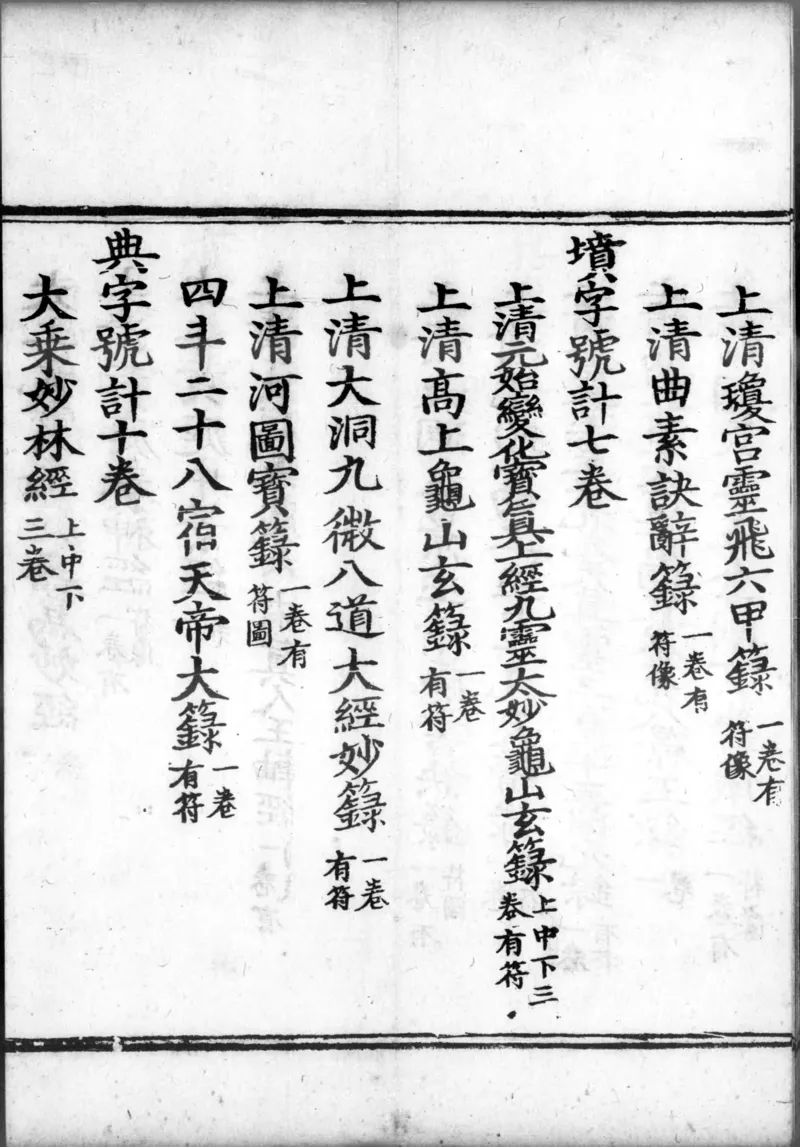 上清瓊宮靈飛六甲籙一卷有符像
上清曲素訣辭籙一卷有符像
墳字號計七卷
上清元始變化寶真上經九靈太妙龜山玄籙上中下三卷有符
上清高上龜山玄籙一卷有符
上清大洞九微八道大經妙籙一卷有符
上清河圖寶籙一卷有符圖
四斗二十八宿天帝大籙一卷有符
典字號計十卷
大乘妙林經上中下三卷